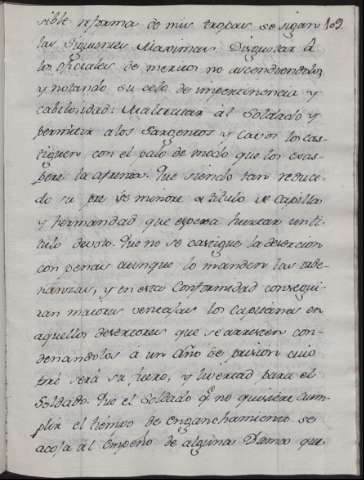 sible reforma de mis tropas se sigan 109.
las siguientes Maximas. Disgustar â
los oficiales de merito no ascendiendolos,
y notando su celo de impertinencia y
cabilosidad. Maltratar âl Soldado y
permitir a los Sargentos y Cavos los cas-
tiguen con el palo de modo que los exas-
pere la afrenta. Que siendo tan reduci-
do su pre se minore a titulo de Capilla
y hermandad que espera hurtar un ti-
tulo devoto. Que no se castigue la desercion
con penas aunque lo manden las orde-
nanzas, y en esta Conformidad consegui-
ran maiores ventajas los Capitanes en
aquellos desertores que se arresten con-
denandolos a un año de prision cuio
pre será su fuero, y livertad para el
Soldado. Que el Soldado q.e no quisiere cum-
plir el tiempo de enganchamiento se
acoja al empeño de alguna Dama que